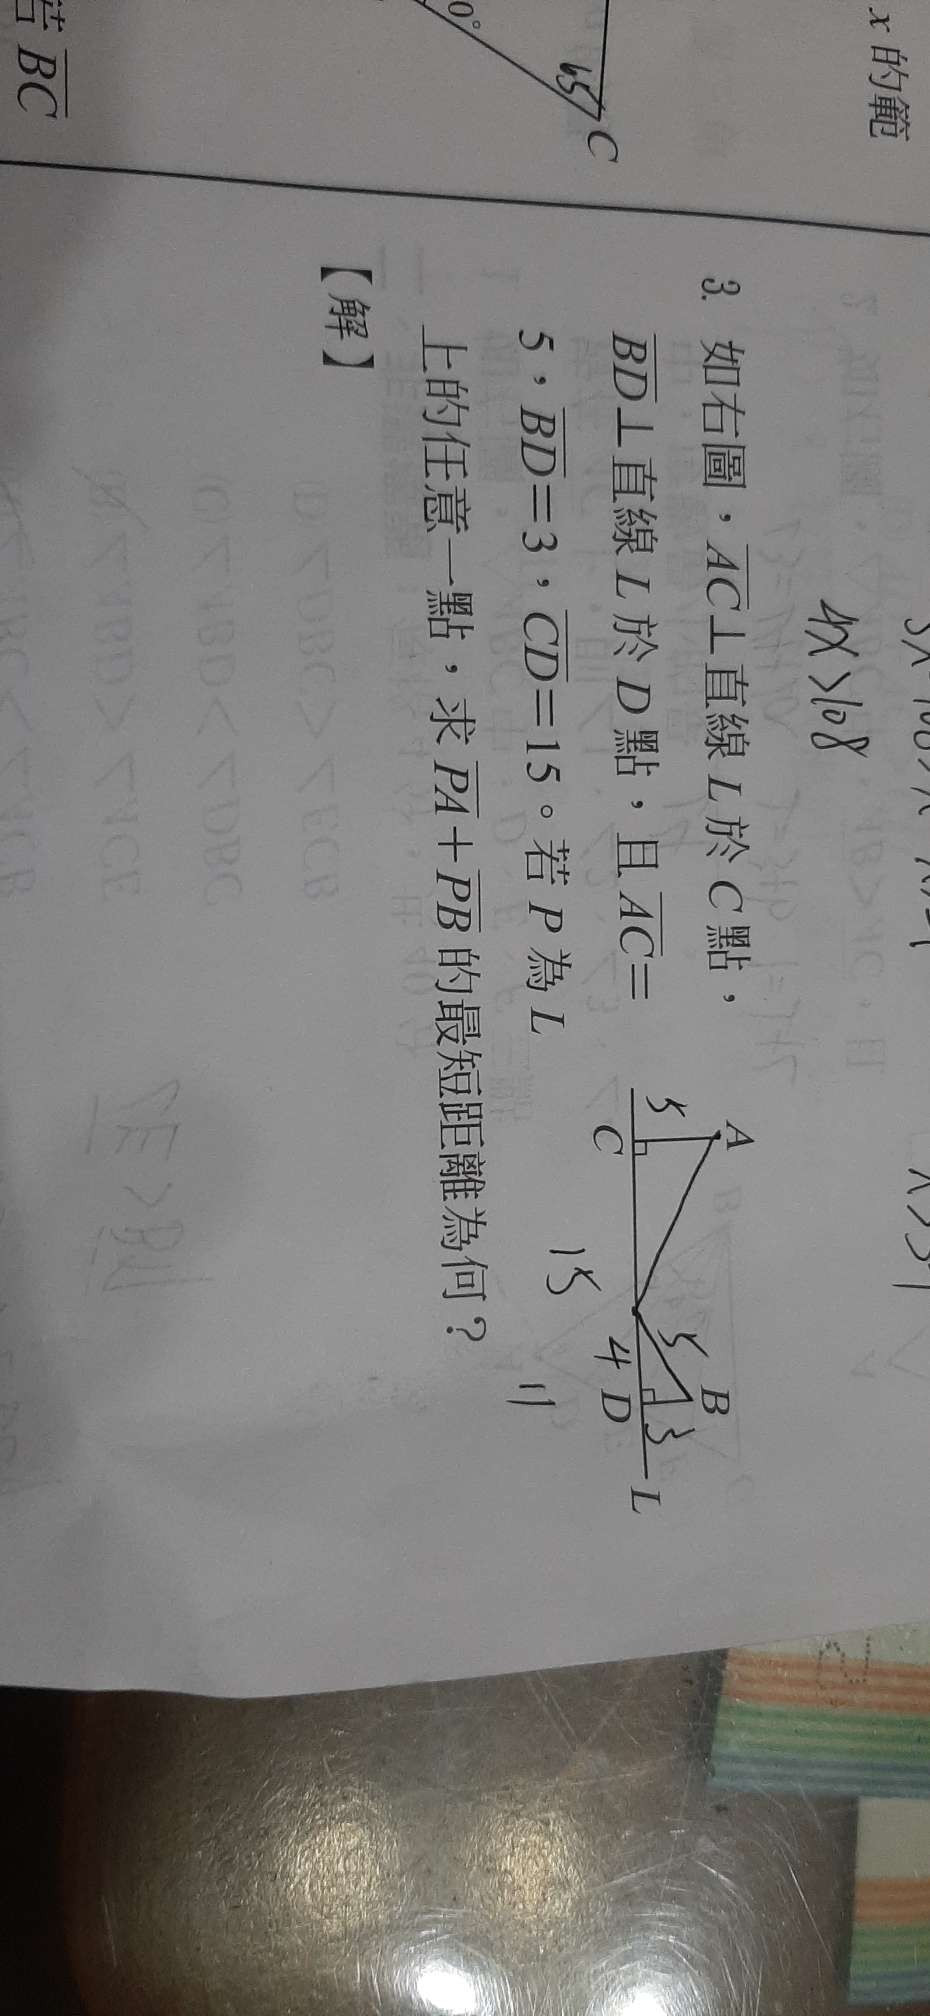 x 的範
若 BC
0°
65
C
4x>108
3. 如右圖，AC⊥直線 L 於 C 點，
BD⊥直線 L 於 D 點，且 AC=
5，BD=3，CD=15。若 P 為 L
上的任意一點，求 PA+PB 的最短距離為何？
【解】
A
B
5
5
3
C
4
D
L
15
11